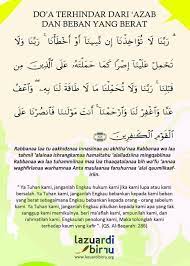 DO'A TERHINDAR DARI 'AZAB
DAN BEBAN YANG BERAT
رَبَّنَا لَا تُؤَاخِذْنَا إِن نَّسِينَا أَوْ أَخْطَأْنَا ۚ رَبَّنَا وَلَا
تَحْمِلْ عَلَيْنَا إِصْرًا كَمَا حَمَلْتَهُ عَلَى الَّذِينَ مِن قَبْلِنَا ۚ
رَبَّنَا وَلَا تُحَمِّلْنَا مَا لَا طَاقَةَ لَنَا بِهِ ۖ وَاعْفُ عَنَّا
وَاغْفِرْ لَنَا وَارْحَمْنَا ۚ أَنتَ مَوْلَانَا فَانصُرْنَا عَلَى
الْقَوْمِ الْكَافِرِينَ
Rabbanaa laa tu aakhidznaa
Rabbanaa wa laa
waghfirlanaa warhamnaa Anta maulaanaa fanshurnaa 'alal qaumilkaaf-
iriin.
" Ya Tuhan kami, janganlah Engkau hukum kami jika kami lupa atau kami
bersalah. Ya Tuhan kami, janganlah Engkau bebankan kepada kami beban
yang berat sebagaimana Engkau bebankan kepada orang - orang sebelum
kami. Ya Tuhan kami, janganlah Engkau pikulkan kepada kami apa yang tak
sanggup kami memikulnya. beri ma'aflah kami, ampunilah kami, dan
rahmatilah kami. Engkau penolong kami, Maka tolonglah kami
terhadap kaum yang kafir". (QS. Al-Baqarah: 286)
lazuardi
birru
www.lazuardibirru.org